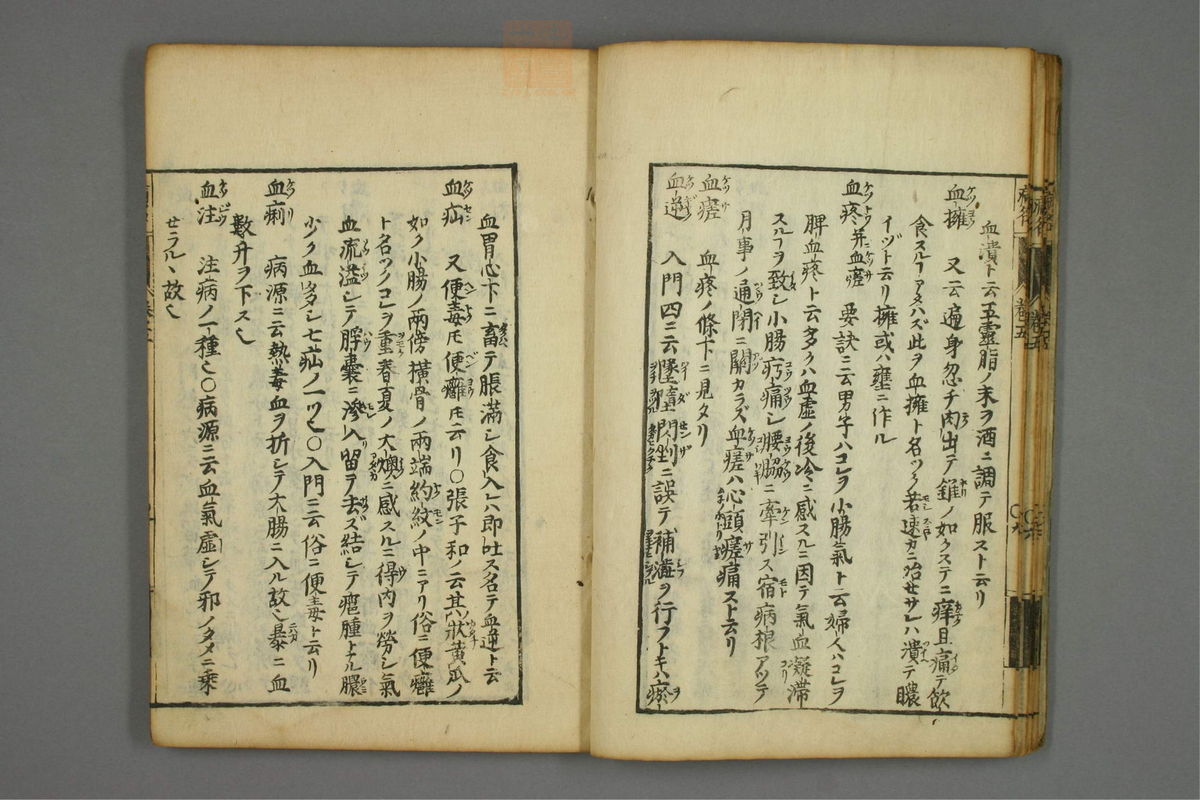 血潰ト云五靈脂ノ末ヲ酒ニ調テ服スト云リ
血擁 又云遍身忽チ肉出テ錐ノ如クステニ痒且痛テ飲
食スルヿアタハズ此ヲ血擁ト名ツク若速カニ治セサレハ潰テ膿
イヅト云リ擁或ハ壅ニ作ル
血疼并血瘥 要訣ニ云男子ハコレヲ小腸氣ト云婦人ハコレヲ
脾血疼ト云多クハ血虛ノ後冷ニ感スルニ因テ氣血凝滯
スルヿヲ致シ小腸疞痛シ腰脇ニ牽引ス宿病根アツテ
月事ノ通閉ニ關カラズ血瘥ハ心頭瘥痛スト云リ
血瘥 血疼ノ條下ニ見タリ
血逆 入門四ニ云墜墮閃剉ニ誤テ補澁ヲ行フトキハ瘀
血胃心下ニ畜テ脹滿シ食入レハ即吐ス名テ血逆ト云
血疝 又便毒圧便癰圧云リ〇張子和ノ云其狀黄瓜ノ
如ク小腸ノ兩傍橫骨ノ兩端約紋ノ中ニアリ俗ニ便癰
ト名ツクコレヲ重春夏ノ大燠ニ感スルニ得內ヲ勞シ氣
血流溢シテ脬囊ニ滲入留テ去ズ結シテ癰腫トナル膿
少ク血多シ七疝ノ一ツ也〇入門ニ云俗ニ便毒ト云リ
血痢 病源ニ云熱毒血ヲ折シテ大腸ニ入ル故也暴ニ血
數升ヲ下ス也
血注 注病ノ一種也〇病源ニ云血氣虛シテ邪ノタメニ乘
セラルヽ故也